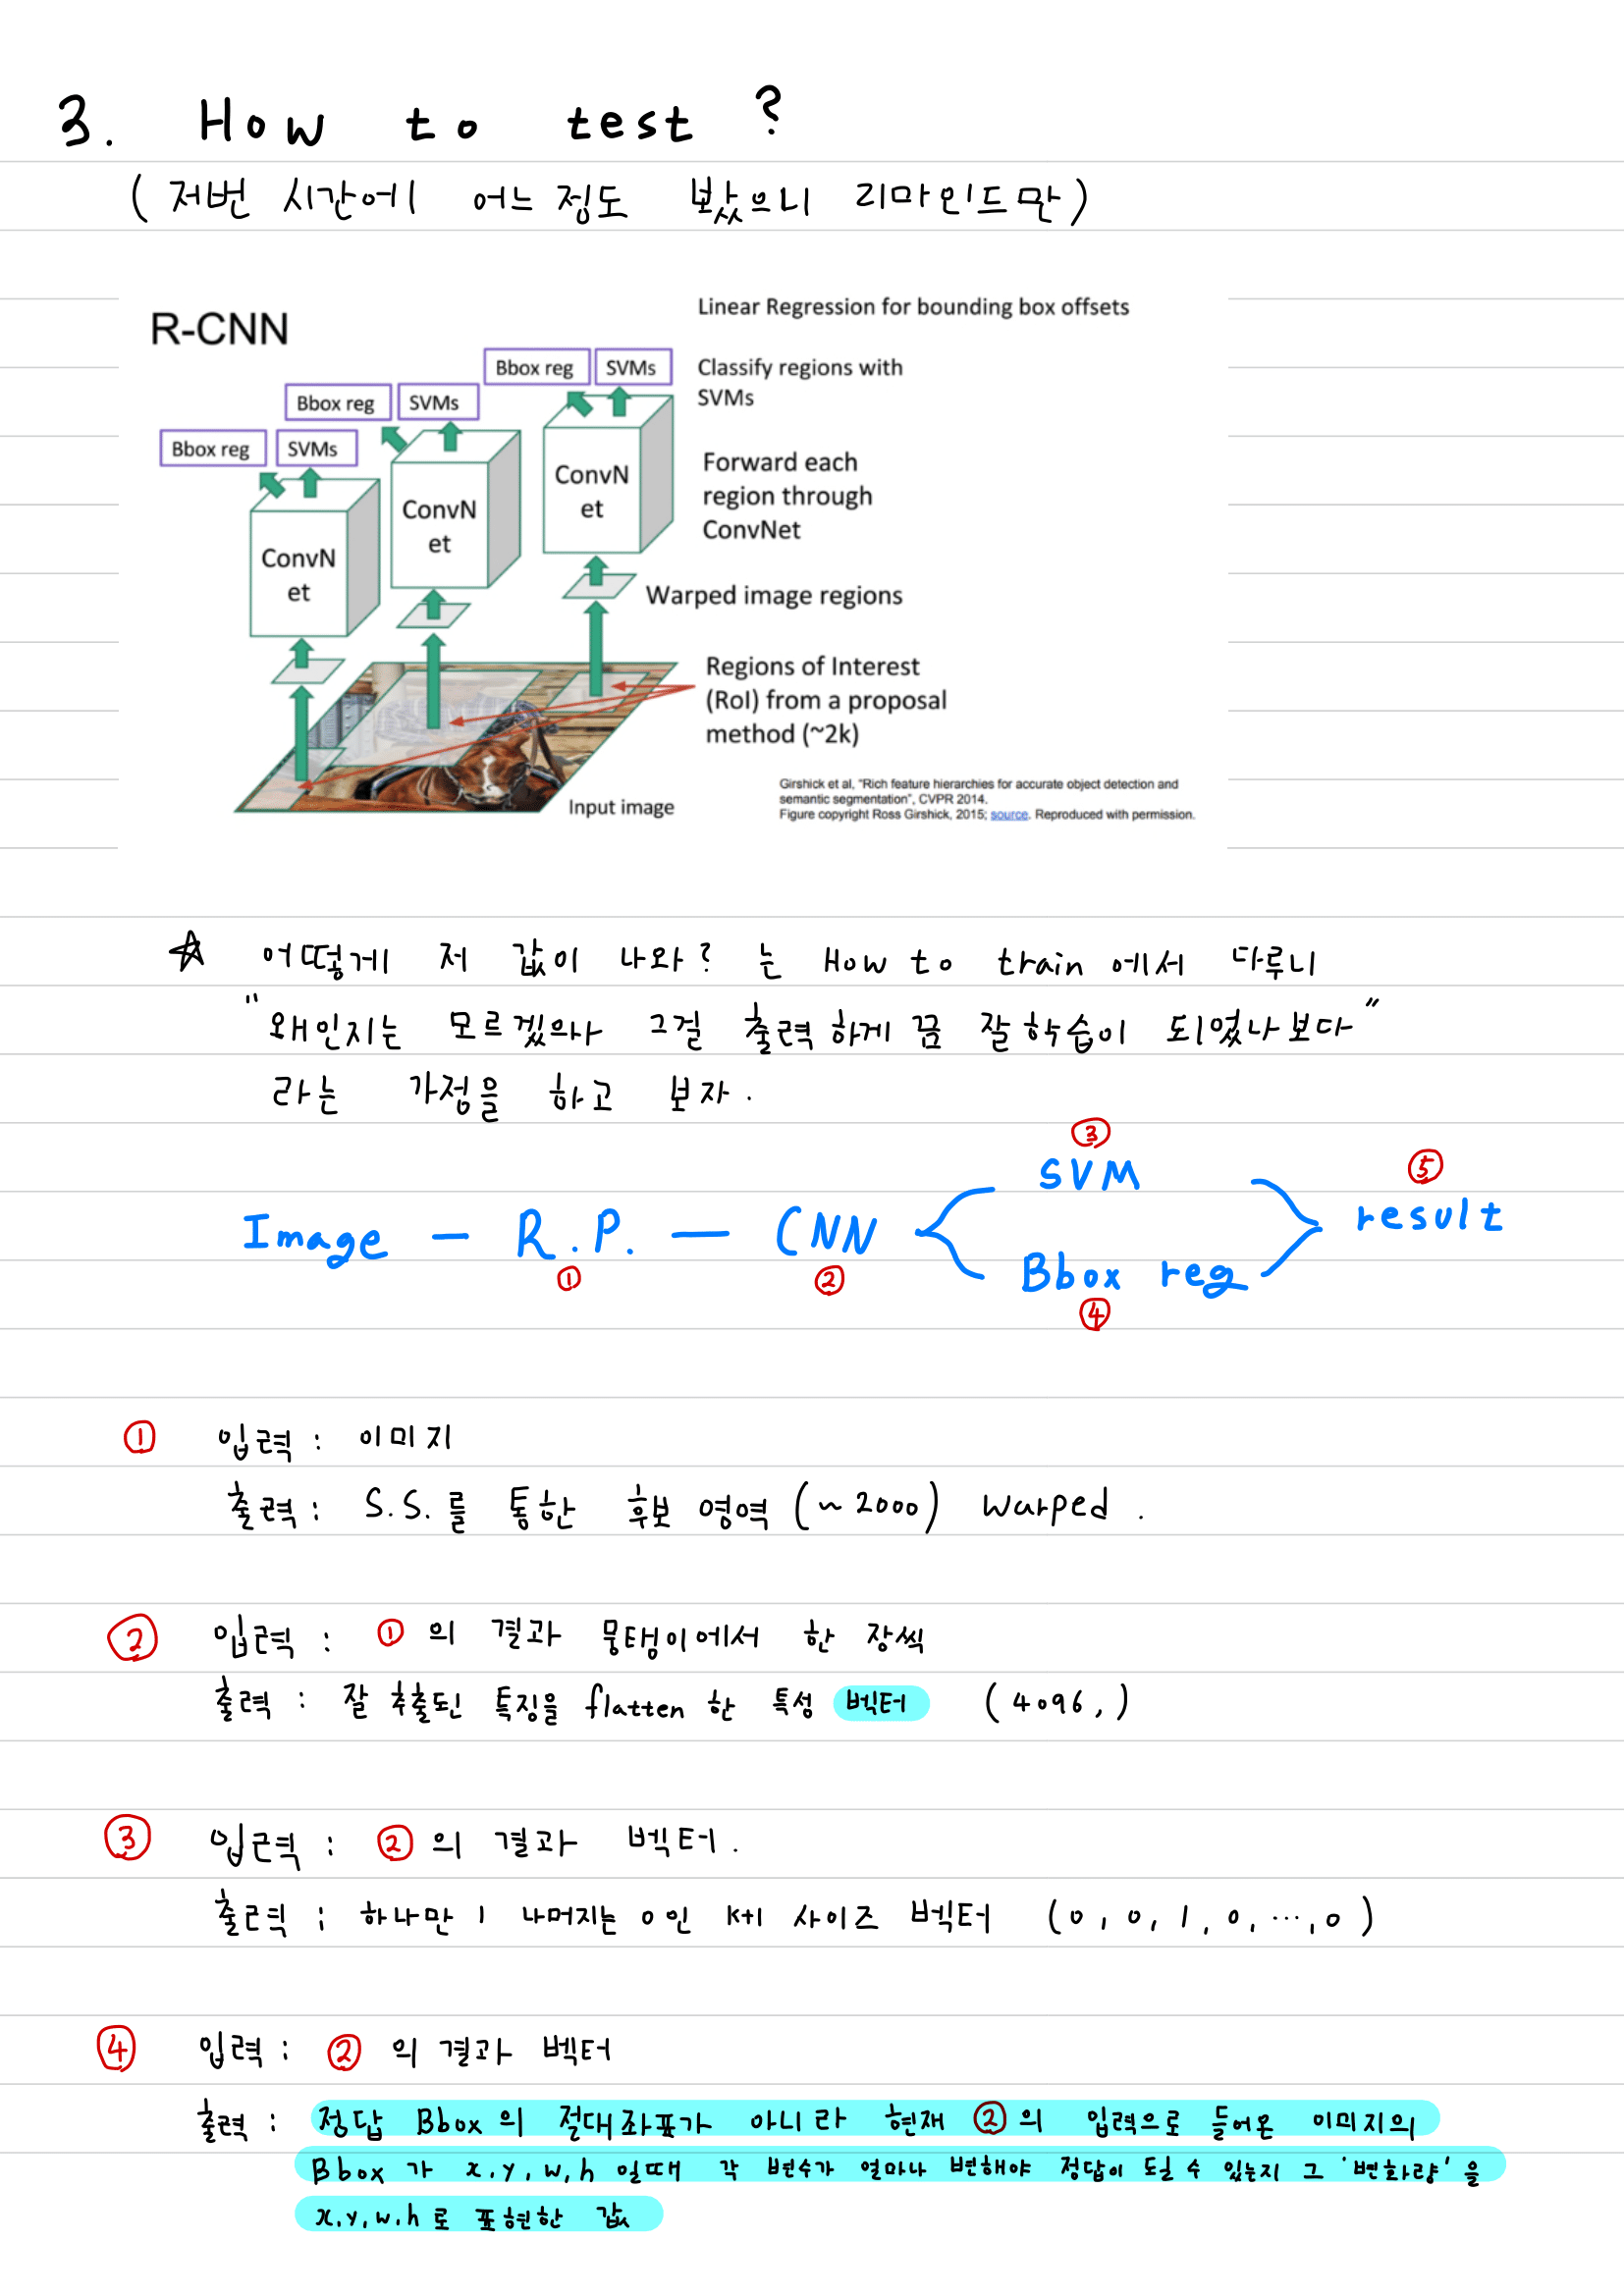 3. How to test ?
( 저번 시간에 어느정도 봤으니 리마인드만 )
R-CNN
Linear Regression for bounding box offsets
Bbox reg SVMs
Classify regions with
SVMs
Bbox reg SVMs
Bbox reg SVMs
Forward each
region through
ConvNet
ConvN
et
ConvN
et
ConvN
et
Warped image regions
Regions of Interest
(RoI) from a proposal
method (~2k)
Input image
Girshick et al, "Rich feature hierarchies for accurate object detection and
semantic segmentation", CVPR 2014.
Figure copyright Ross Girshick, 2015; source. Reproduced with permission.
☆ 어떻게 저 값이 나와? 는 How to train 에서 다루니
"왜인지는 모르겠으나 그걸 출력하게끔 잘 학습이 되었나보다"
라는 가정을 하고 보자.
③
SVM
⑤
result
Image — R.P. — CNN
① ②
Bbox reg
④
① 입력 : 이미지
출력 : S.S.를 통한 후보 영역 (~2000) warped .
② 입력 : ①의 결과 뭉탬이에서 한 장씩
출력 : 잘 추출된 특징을 flatten 한 특성 벡터 (4096,)
③ 입력 : ②의 결과 벡터.
출력 : 하나만 1 나머지는 0인 k+1 사이즈 벡터 (0, 0, 1, 0, ..., 0)
④ 입력 : ②의 결과 벡터
출력 : 정답 Bbox의 절대좌표가 아니라 현재 ②의 입력으로 들어온 이미지의
Bbox가 x,y,w,h 일때 각 변수가 얼마나 변해야 정답이 될 수 있는지 그 '변화량'을
x,y,w,h로 표현한 값